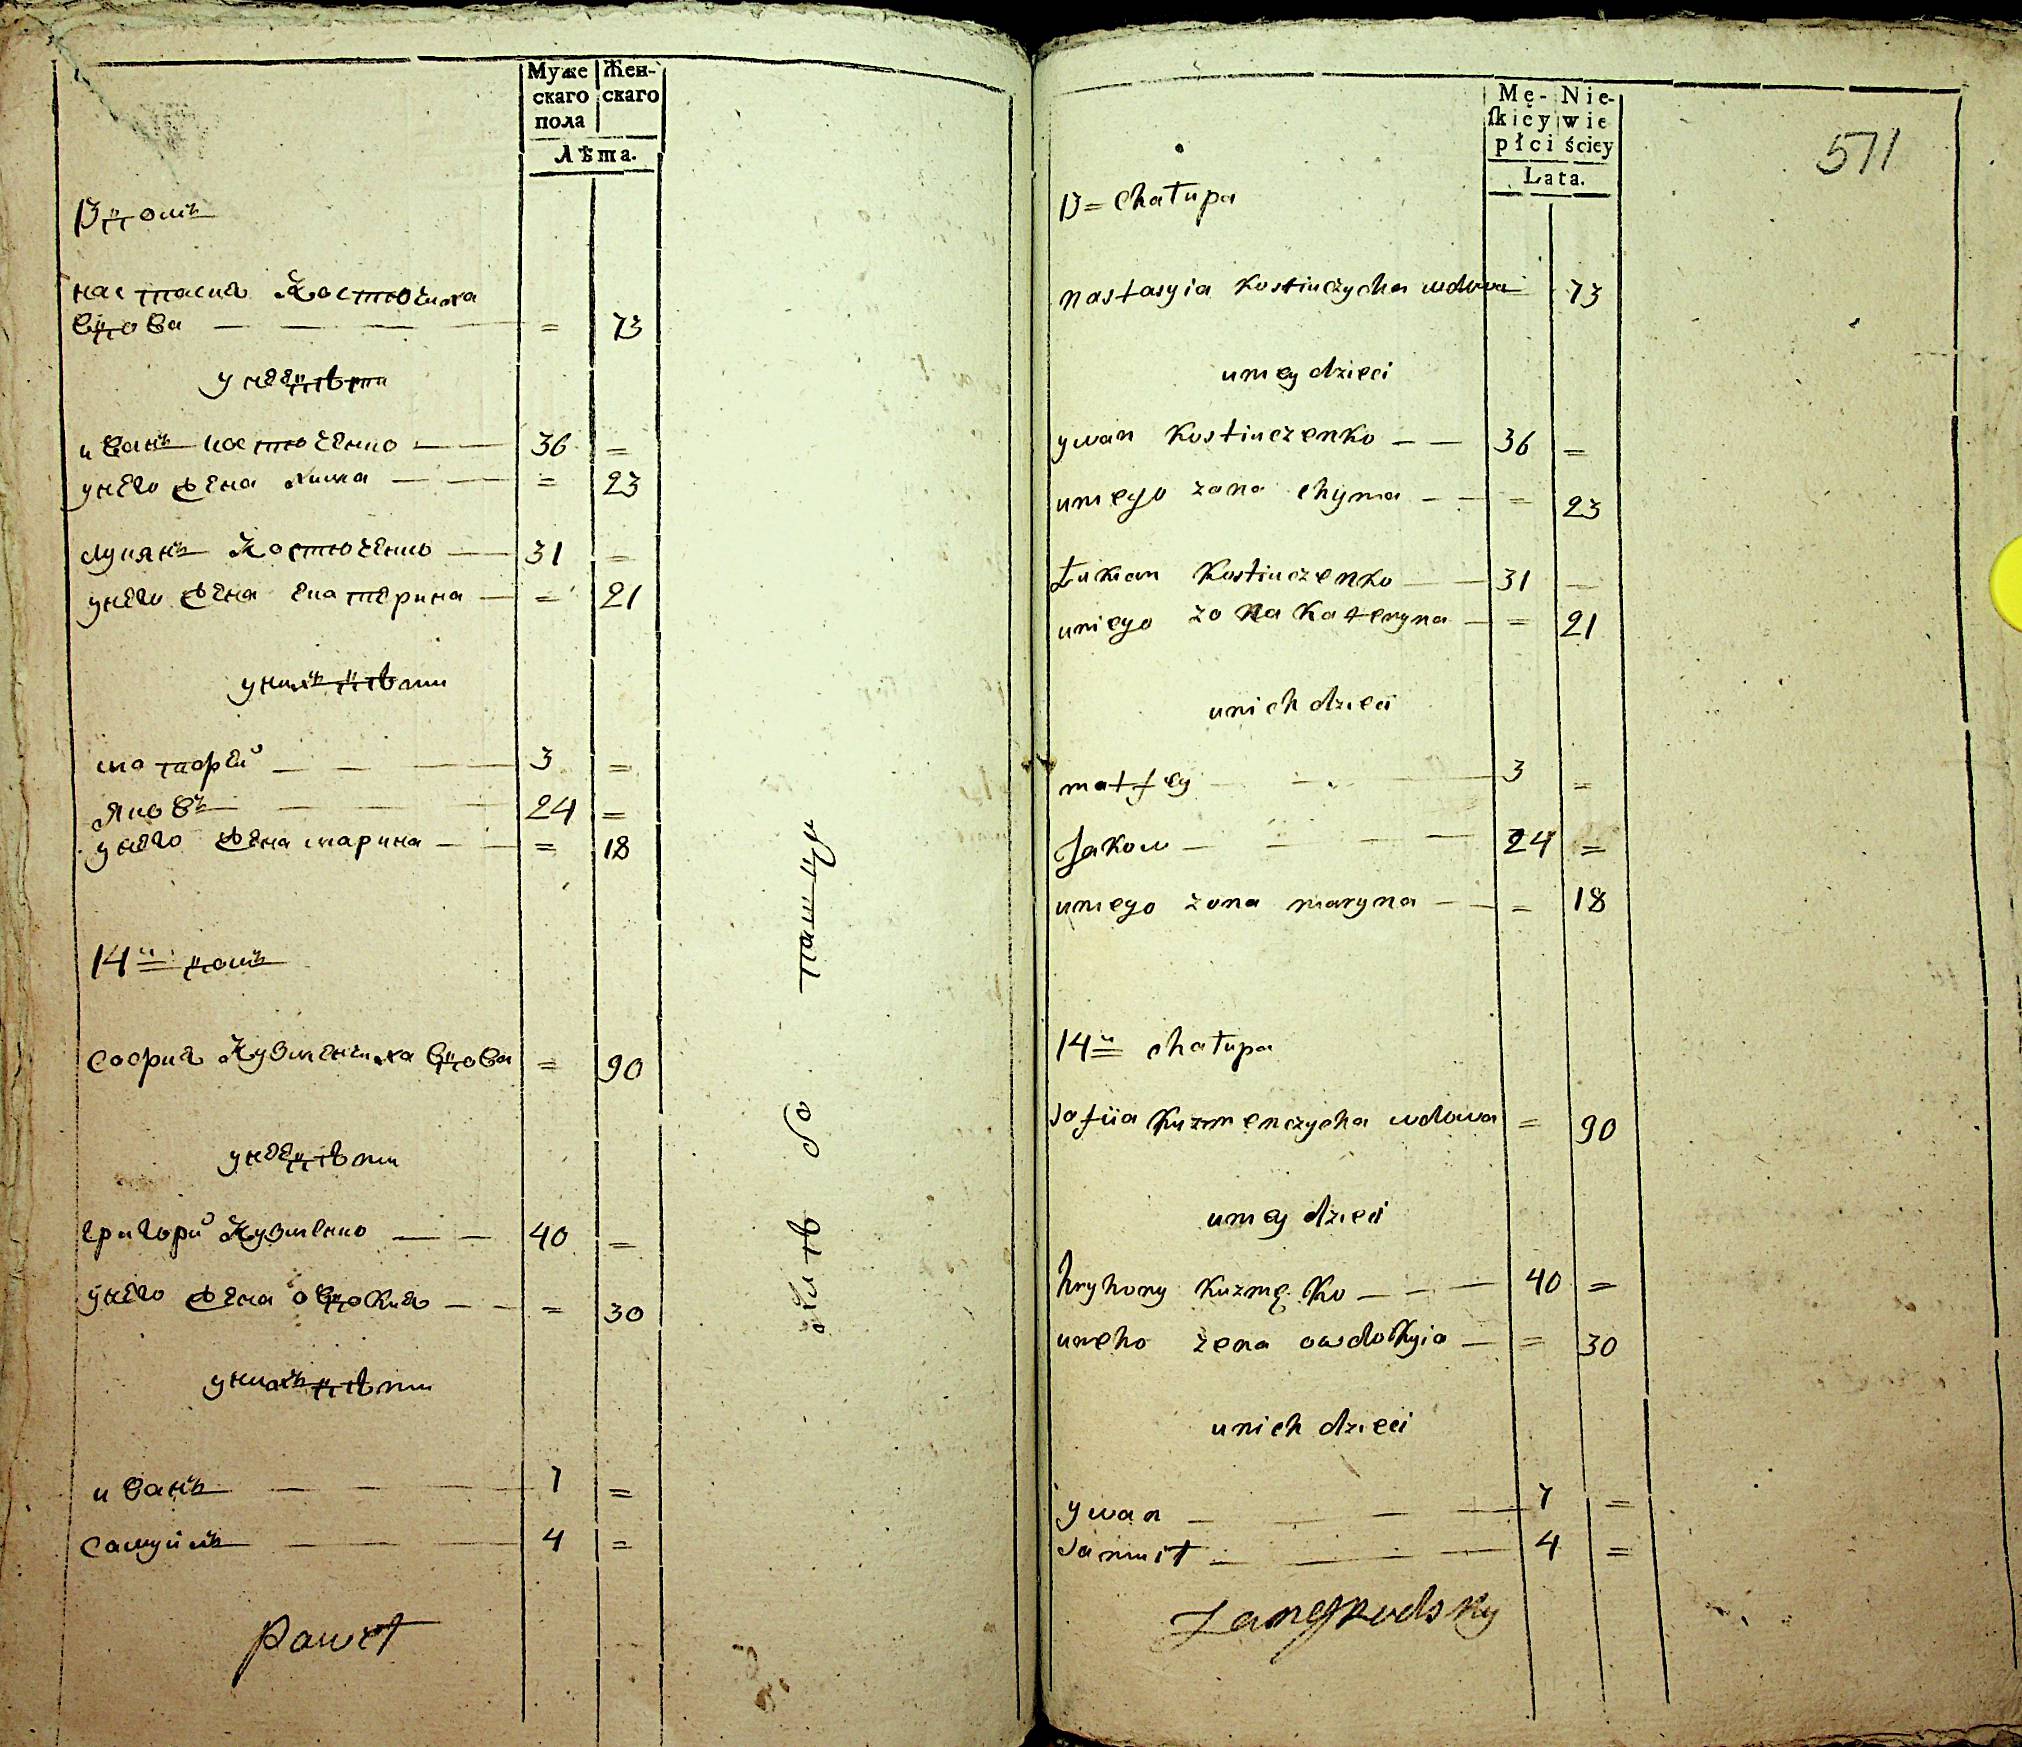 Муже
скаго
пола
Жен-
скаго
Лѣта.
13й домъ
настасия Костючиха
вдова — — — — = 73
у нее дѣти
иванъ костюченко — — 36 =
у него жена хима — — = 23
лукянъ Костюченко — 31 =
у него жена екатерина — = 21
у нихъ дѣти
матфей — — — 3 =
Яковъ — — — 24 =
у него жена марина — — = 18
14й домъ
софия Кузменчиха вдова = 90
у нее дѣти
григорий Кузменко — — 40 =
у него жена овдокия — — = 30
у нихъ дѣти
иванъ — — — — 7 =
самуилъ — — — 4 =
Paweł
Mę-
ſkiey
płci
Nie-
wie
ściey
Lata.
571
13 = chałupa
nastasyia Kostiuczycha wdowa 73
u niey dzieci
ywan Kostiuczenko — — 36 =
u niego zona chyma — — = 23
Łukian Kostiuczenko — — 31 =
u niego zona Kateryna — = 21
u nich dzieci
matfey — — — 3 =
Jakow — — — — 24 =
u niego zona maryna — — = 18
14й chałupa
sofiia Kuzmenczycha wdowa = 90
u niey dzieci
hryhory Kuzmęko — — — 40 =
u neho żena owdokyia — = 30
u nich dzieci
ywan — — — — 7 =
samuił — — — — 4 =